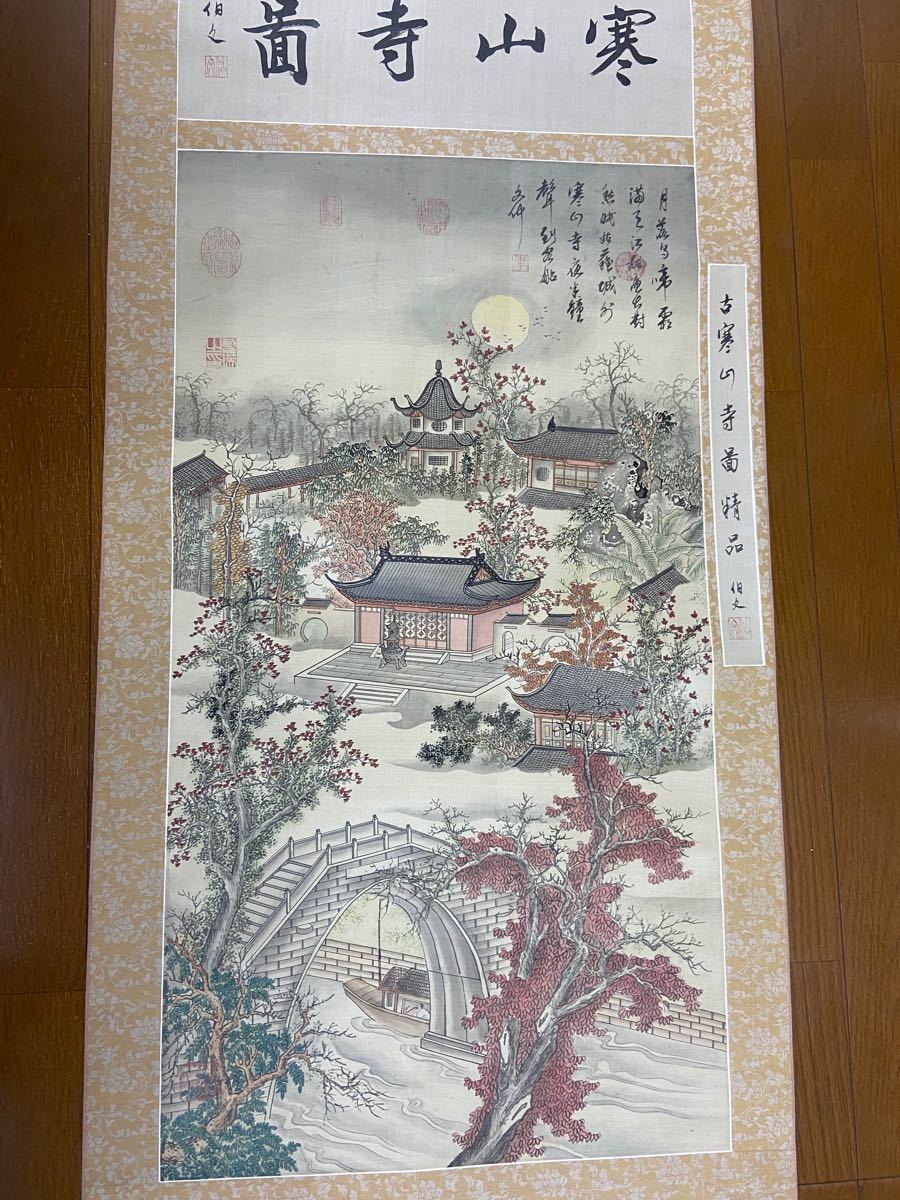 寒山寺啚
伯文
月落烏啼霜
滿天江楓漁火對
愁眠姑蘇城外
寒山寺夜半鐘
聲到客船
古寒山寺啚精品
伯文